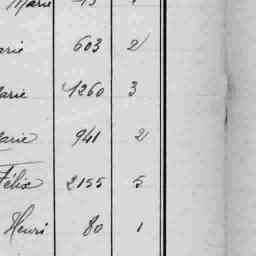 Marie
arie 603 2
arie 1260 3
Marie 941 2
Félix 2155 5
Henri 80 1